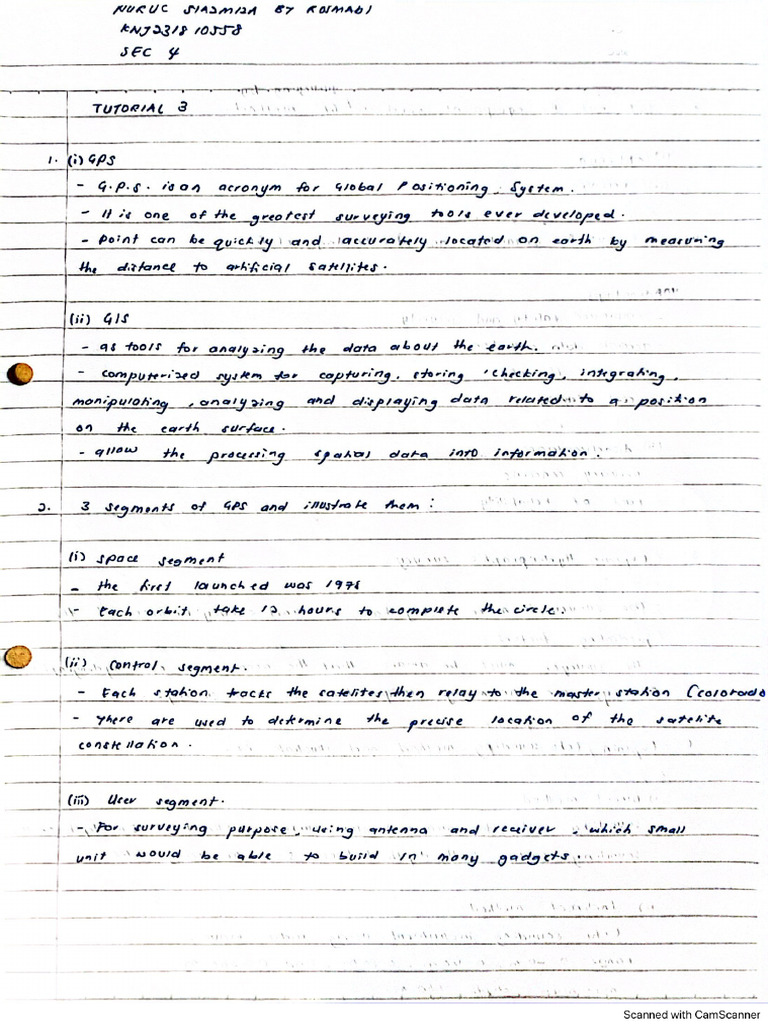 NURUL SIAZMIZA BT ROSMADI
KNJ2318 10558
SEC 4
TUTORIAL 3
1. (i) GPS
- G.P.S. is an acronym for Global Positioning System.
- It is one of the greatest surveying tools ever developed.
- Point can be quickly and accurately located on earth by measuring
the distance to artificial satellites.
(ii) GIS
- as tools for analyzing the data about the earth.
- computerized system for capturing, storing, checking, integrating,
manipulating, analyzing and displaying data related to a position
on the earth surface.
- allow the processing spatial data into information.
2. 3 segments of GPS and illustrate them :
(i) space segment
- the first launched was 1978
- Each orbit take 12 hours to complete the circle.
(ii) control segment.
- Each station tracks the satelites then relay to the master station (colorado
- There are used to determine the precise location of the satelite
constellation.
(iii) User segment.
- For surveying purpose, using antenna and receiver, which small
unit would be able to build in many gadgets.
Scanned with CamScanner